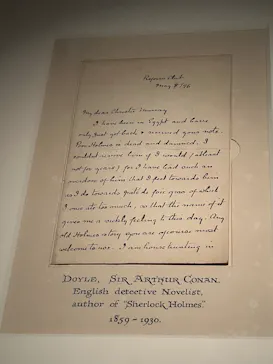 Reform Club
May 4/96
My dear Christie Murray
I have been in Egypt and have
only just got back & received your note.
Poor Holmes is dead and damned. I
couldn't revive him if I would (at least
not for years) for I have had such an
overdose of him that I feel towards him
as I do towards paté de foie gras of which
I once ate too much, so that the name of it
gives me a sickly feeling to this day. Any
old Holmes story you are of course most
welcome to use. I am house hunting in
DOYLE, SIR ARTHUR CONAN.
English detective Novelist,
author of "Sherlock Holmes."
1859 - 1930.